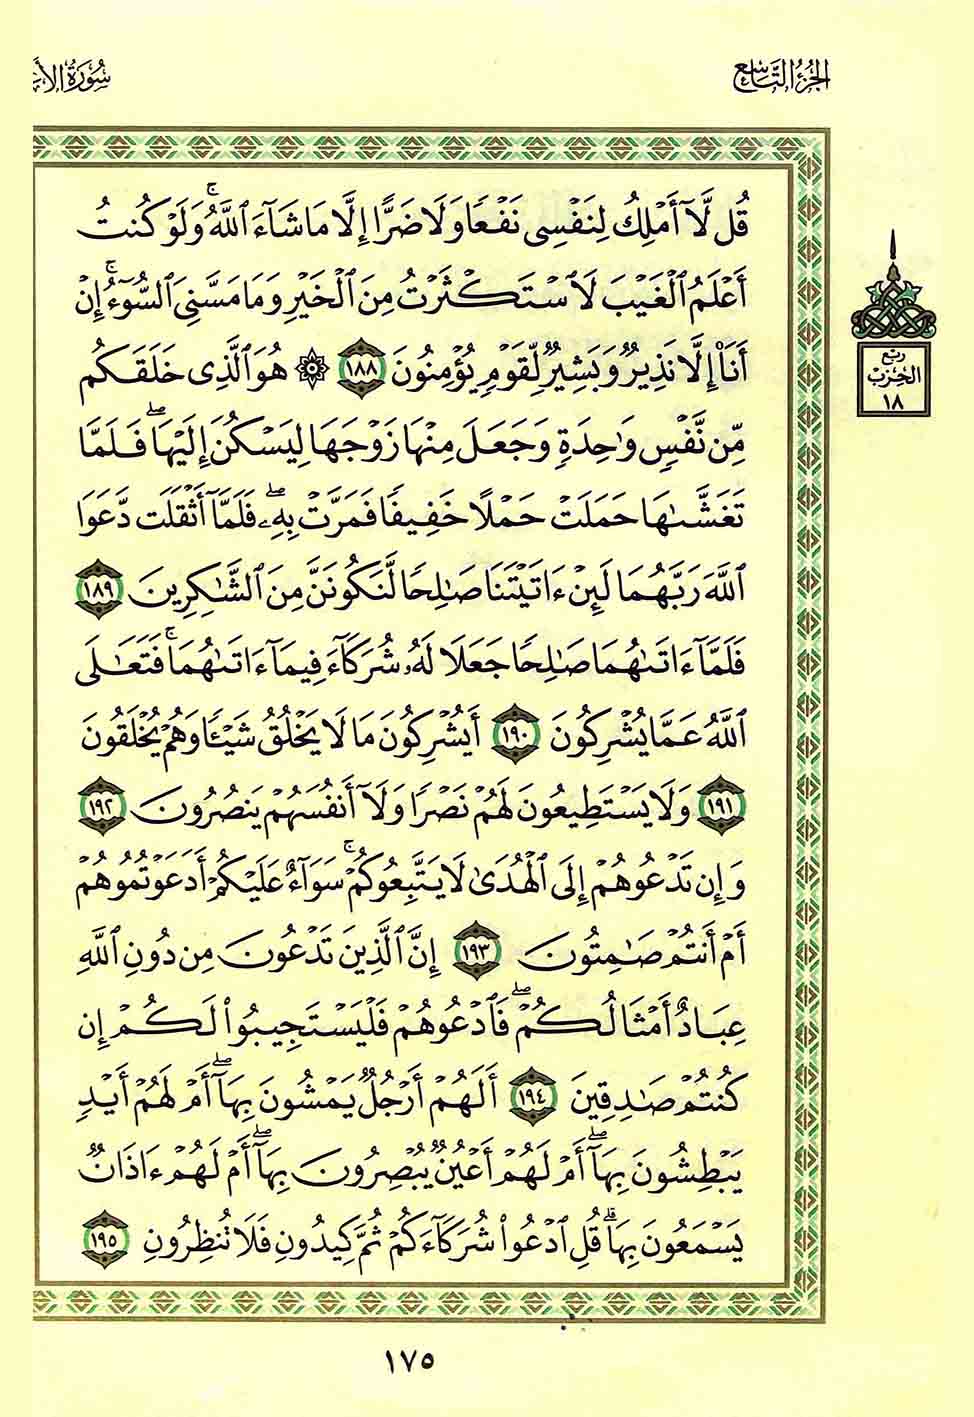 الجزء التاسع
سورة الأ
قُل لَّآ أَمْلِكُ لِنَفْسِى نَفْعًا وَلَا ضَرًّا إِلَّا مَا شَآءَ ٱللَّهُ ۚ وَلَوْ كُنتُ
أَعْلَمُ ٱلْغَيْبَ لَٱسْتَكْثَرْتُ مِنَ ٱلْخَيْرِ وَمَا مَسَّنِىَ ٱلسُّوٓءُ ۚ إِنْ
أَنَا۠ إِلَّا نَذِيرٌ وَبَشِيرٌ لِّقَوْمٍ يُؤْمِنُونَ ١٨٨ ۞ هُوَ ٱلَّذِى خَلَقَكُم
ربع
الحزب
١٨
مِّن نَّفْسٍ وَٰحِدَةٍ وَجَعَلَ مِنْهَا زَوْجَهَا لِيَسْكُنَ إِلَيْهَا ۖ فَلَمَّا
تَغَشَّىٰهَا حَمَلَتْ حَمْلًا خَفِيفًا فَمَرَّتْ بِهِۦ ۖ فَلَمَّآ أَثْقَلَت دَّعَوَا
ٱللَّهَ رَبَّهُمَا لَئِنْ ءَاتَيْتَنَا صَٰلِحًا لَّنَكُونَنَّ مِنَ ٱلشَّٰكِرِينَ ١٨٩
فَلَمَّآ ءَاتَىٰهُمَا صَٰلِحًا جَعَلَا لَهُۥ شُرَكَآءَ فِيمَآ ءَاتَىٰهُمَا ۚ فَتَعَٰلَى
ٱللَّهُ عَمَّا يُشْرِكُونَ ١٩٠ أَيُشْرِكُونَ مَا لَا يَخْلُقُ شَيْـًٔا وَهُمْ يُخْلَقُونَ
١٩١ وَلَا يَسْتَطِيعُونَ لَهُمْ نَصْرًا وَلَآ أَنفُسَهُمْ يَنصُرُونَ ١٩٢
وَإِن تَدْعُوهُمْ إِلَى ٱلْهُدَىٰ لَا يَتَّبِعُوكُمْ ۚ سَوَآءٌ عَلَيْكُمْ أَدَعَوْتُمُوهُمْ
أَمْ أَنتُمْ صَٰمِتُونَ ١٩٣ إِنَّ ٱلَّذِينَ تَدْعُونَ مِن دُونِ ٱللَّهِ
عِبَادٌ أَمْثَالُكُمْ ۖ فَٱدْعُوهُمْ فَلْيَسْتَجِيبُوا۟ لَكُمْ إِن
كُنتُمْ صَٰدِقِينَ ١٩٤ أَلَهُمْ أَرْجُلٌ يَمْشُونَ بِهَآ ۖ أَمْ لَهُمْ أَيْدٍ
يَبْطِشُونَ بِهَآ ۖ أَمْ لَهُمْ أَعْيُنٌ يُبْصِرُونَ بِهَآ ۖ أَمْ لَهُمْ ءَاذَانٌ
يَسْمَعُونَ بِهَا ۗ قُلِ ٱدْعُوا۟ شُرَكَآءَكُمْ ثُمَّ كِيدُونِ فَلَا تُنظِرُونِ ١٩٥
١٧٥